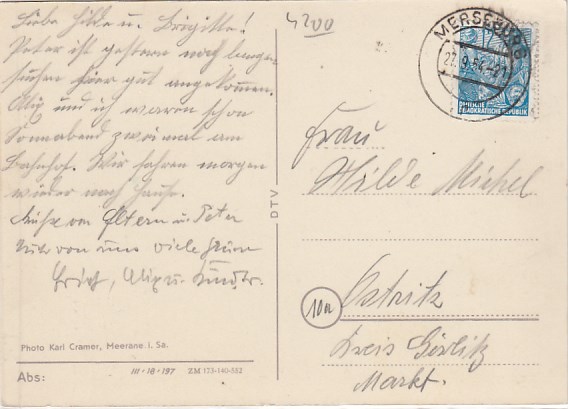 Liebe Hilde u. Brigitte!
Peter ist gestern nach langem
suchen hier gut angekommen.
und ich waren schon
Sonnabend zweimal am
Bahnhof. Wir fahren morgen
wieder nach Hause.
Grüße von Eltern u. Peter
Auch von uns viele Grüße
Erich,
4200
MERSEBURG
DEUTSCHE
DEMOKRATISCHE REPUBLIK
Frau
Hilde Michel
10a
Ostritz
Kreis Görlitz
Markt.
DTV
Photo Karl Cramer, Meerane i. Sa.
III-18-197 ZM 173-140-552
Abs: